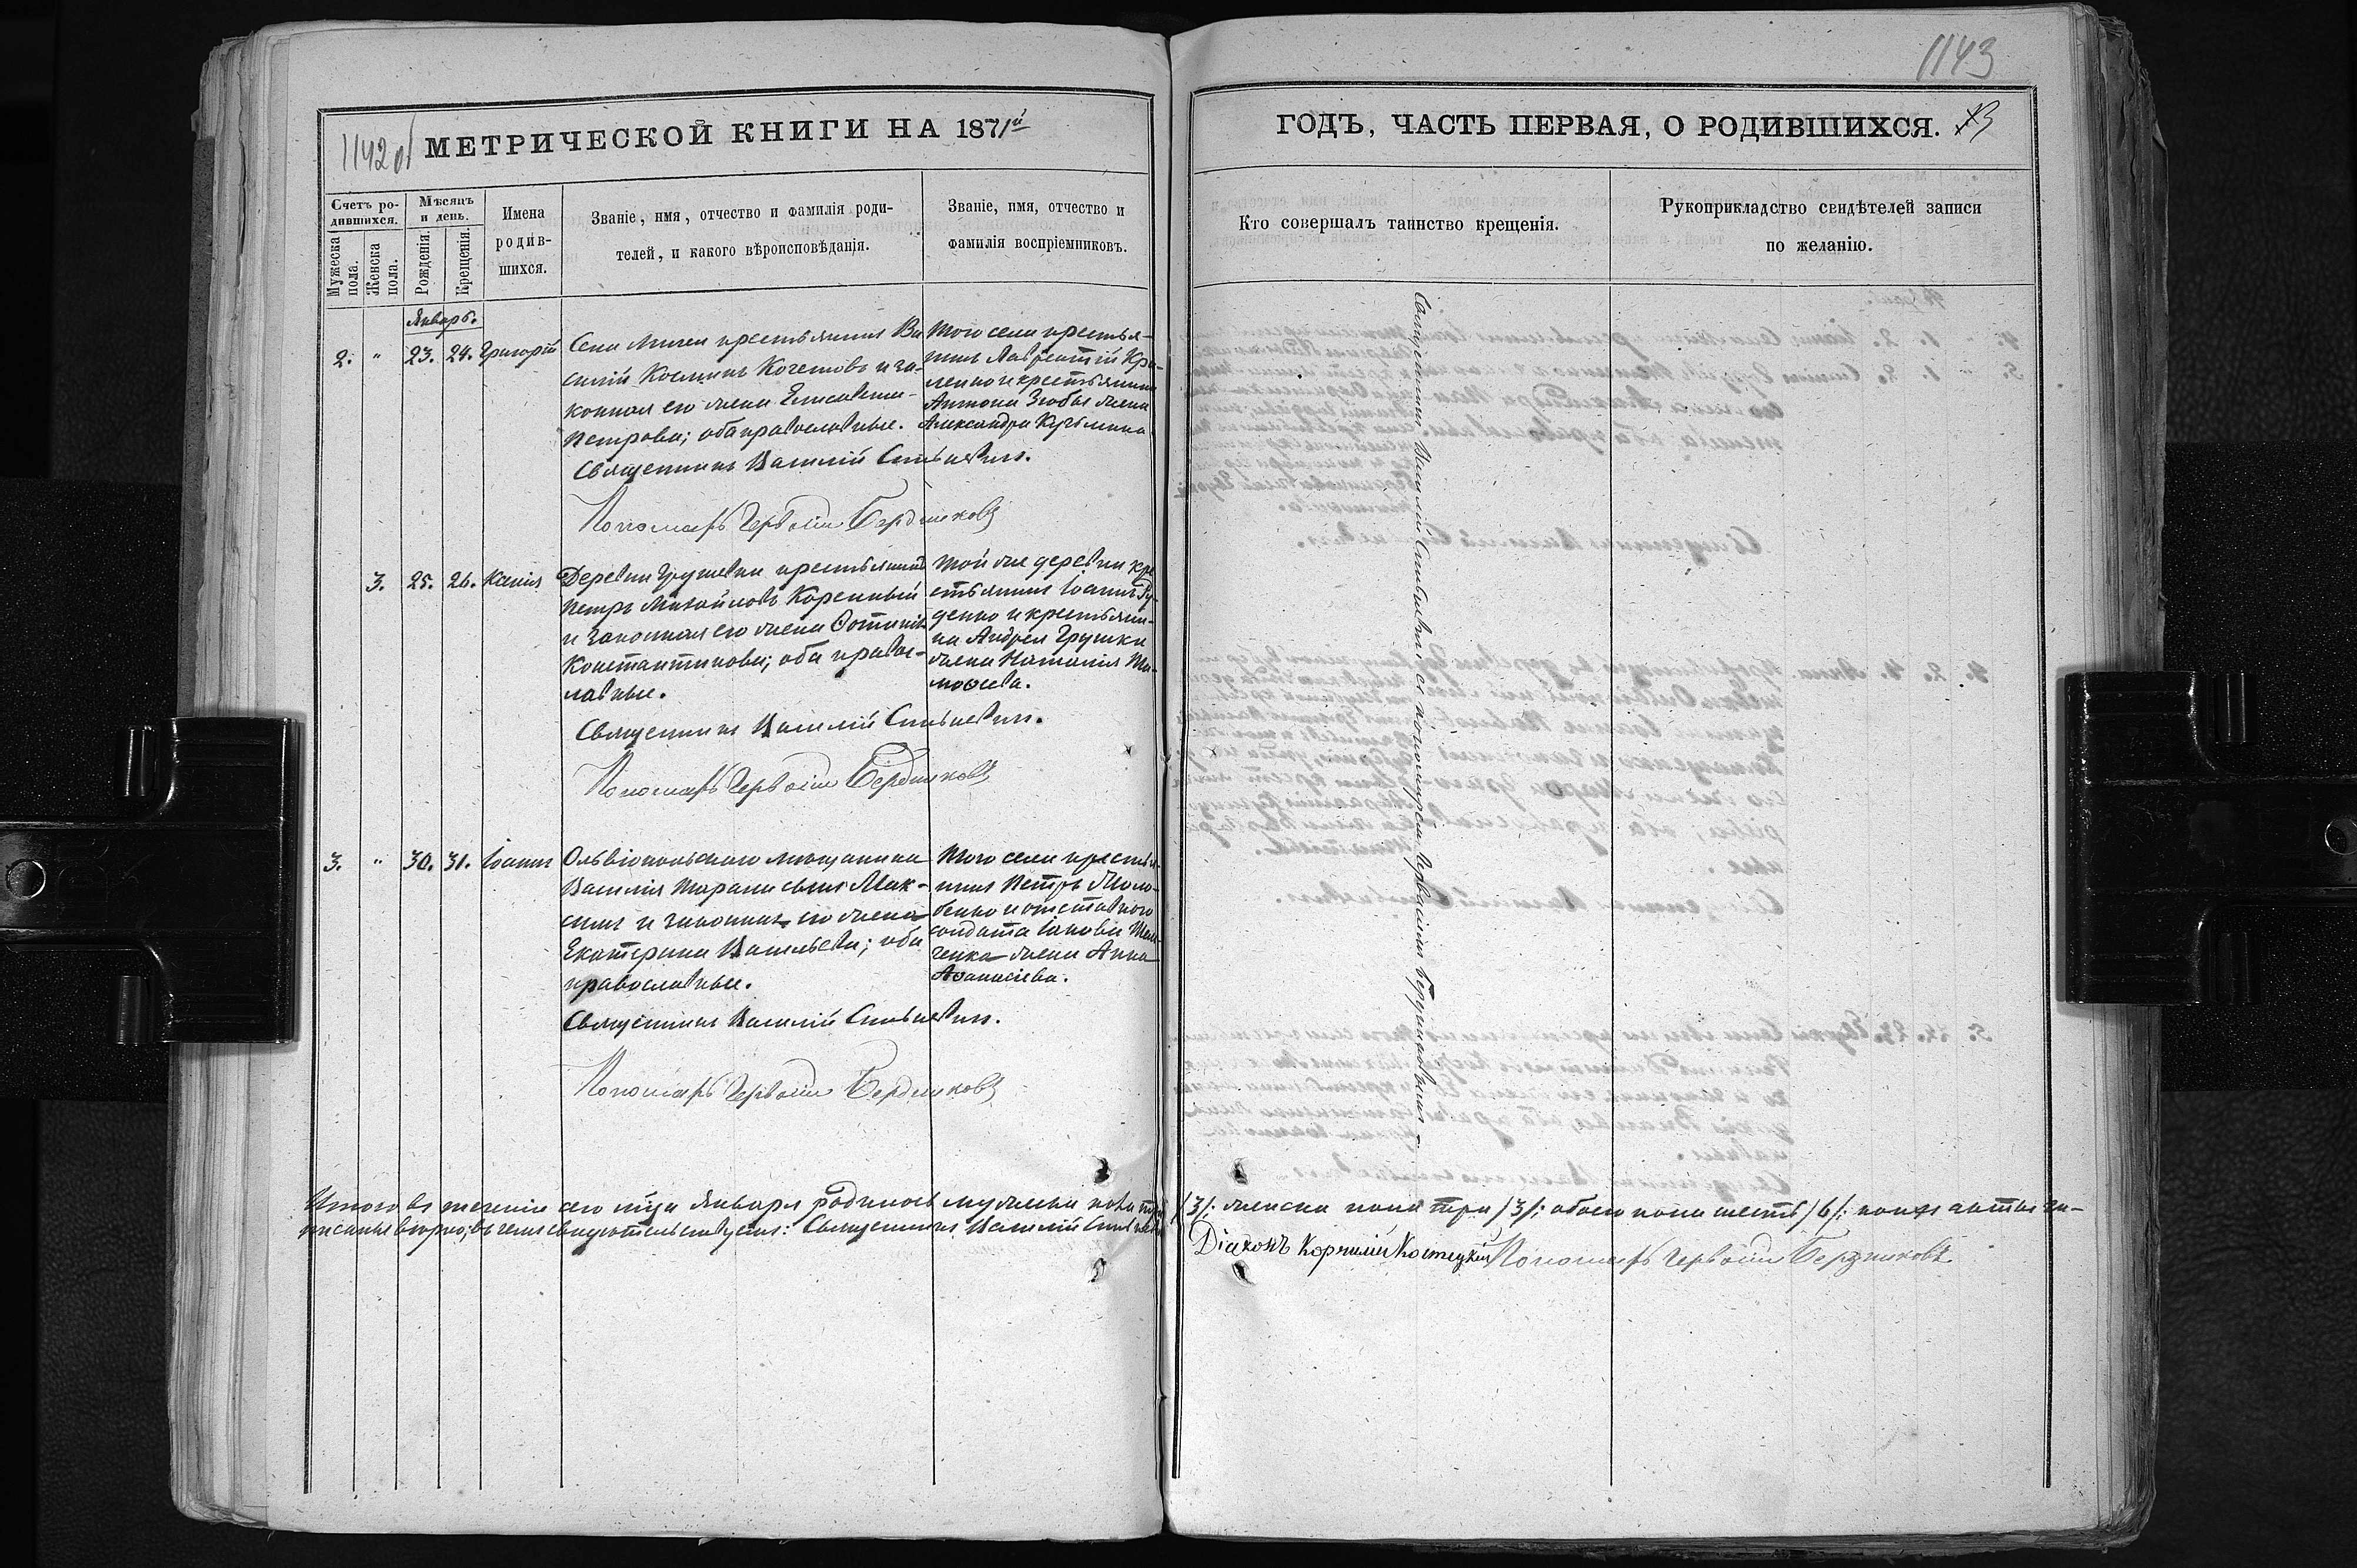 1142об
МЕТРИЧЕСКОЙ КНИГИ НА 1871й
Счетъ ро-
дившихся.
Мѣсяцъ
и день.
Мужеска
пола.
Женска
пола.
Рожденія.
Крещенія.
Имена
родив-
шихся.
Званіе, имя, отчество и фамилія роди-
телей, и какого вѣроисповѣданія.
Званіе, имя, отчество и
фамилія воспріемниковъ.
Январь.
2. " 23. 24. Григорій
Села крестьянинъ Ва-
силій Косминъ Кочетовъ и за-
конная его жена Елисавета
Петрова; оба православные.
Того села крестья-
нинъ Лаврентій
и крестьянина
Антона жена
Александра
Священникъ Василій
Пономарь Гервасій Бердниковъ
3. 25. 26. Ксенія
Деревни Грушевки крестьянинъ
Петръ Михайловъ Коренный
и законная его жена Фотинія
Константинова; оба правос-
лавные.
Той же деревни кре-
стьянинъ Іоаннъ Ру-
денко и крестьяни-
на Андрея Грушки
жена Наталія Ти-
моѳеева.
Священникъ Василій
Пономарь Гервасій Бердниковъ
3. " 30. 31. Іоаннъ
Ольвіопольскаго мѣщанина
Василія Тарана сынъ Мак-
симъ и законная его жена
Екатерина Васильева; оба
православные.
Того села крестья-
нинъ Петръ
и отставного
солдата Іакова
жена Анна
Аѳанасіева.
Священникъ Василій
Пономарь Гервасій Бердниковъ
1143
ГОДЪ, ЧАСТЬ ПЕРВАЯ, О РОДИВШИХСЯ.
Кто совершалъ таинство крещенія.
Рукоприкладство свидѣтелей записи
по желанію.
Священникъ Василій съ пономаремъ Гервасіемъ Бердниковымъ
Итого въ теченіи сего м-ца Января родилось мужеска пола три /3/: женска пола три /3/: обоего пола шесть /6/: коихъ актъ за-
писанъ вѣрно, въ чемъ свидѣтельствуемъ: Священникъ Василій Діаконъ Корнилій Костецкій Пономарь Гервасій Бердниковъ